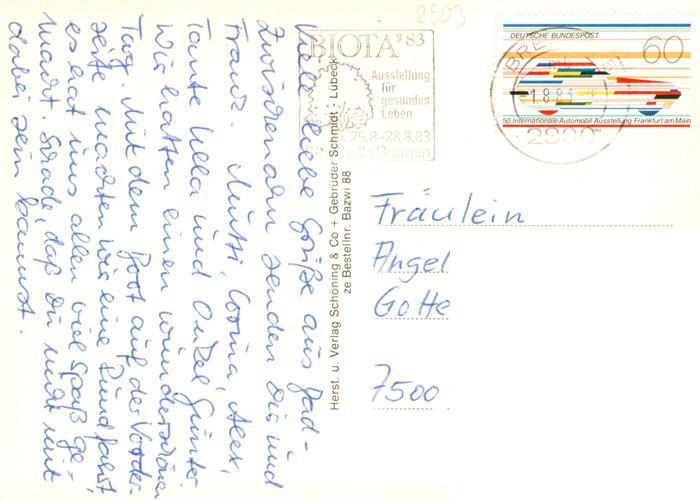 Viele liebe Grüße aus Bad-
Zwischenahn senden Dir und
Franz. Mutti, Corina, Alex,
Tante Ulla und Onkel Günter
Wir hatten einen wunderschönen
Tag. Mit dem Boot auf der Vorder-
seite machten wir eine Rundfahrt,
es hat uns allen viel Spaß ge-
macht. Schade, daß Du nicht mit
dabei sein kannst.
Herst. u. Verlag Schöning & Co + Gebrüder Schmidt · Lübeck
ze Bestellnr. Bazwi 88
2503
BIOTA '83
Ausstellung
für
gesundes
Leben
25.8-28.8.83
Bremen
BRE
1.8.83
2800
DEUTSCHE BUNDESPOST
60
50. Internationale Automobil Ausstellung Frankfurt am Main
Fräulein
Angel
Gotte
7500